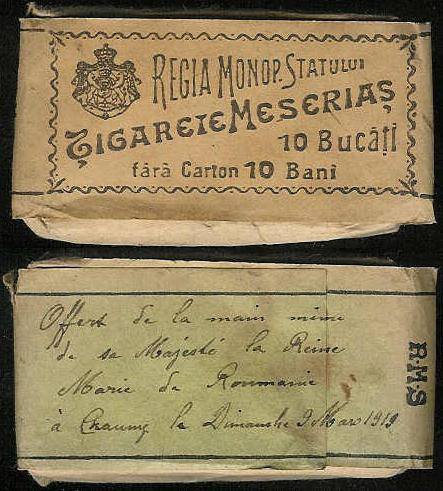 REGIA MONOP. STATULUI
ȚIGARETE MESERIAȘ
10 BUCĂȚI
fără Carton 10 Bani
Offert de la main même
de sa Majesté la Reine
Marie de Roumanie
à Chauny le Dimanche 9 Mars 1919
R.M.S